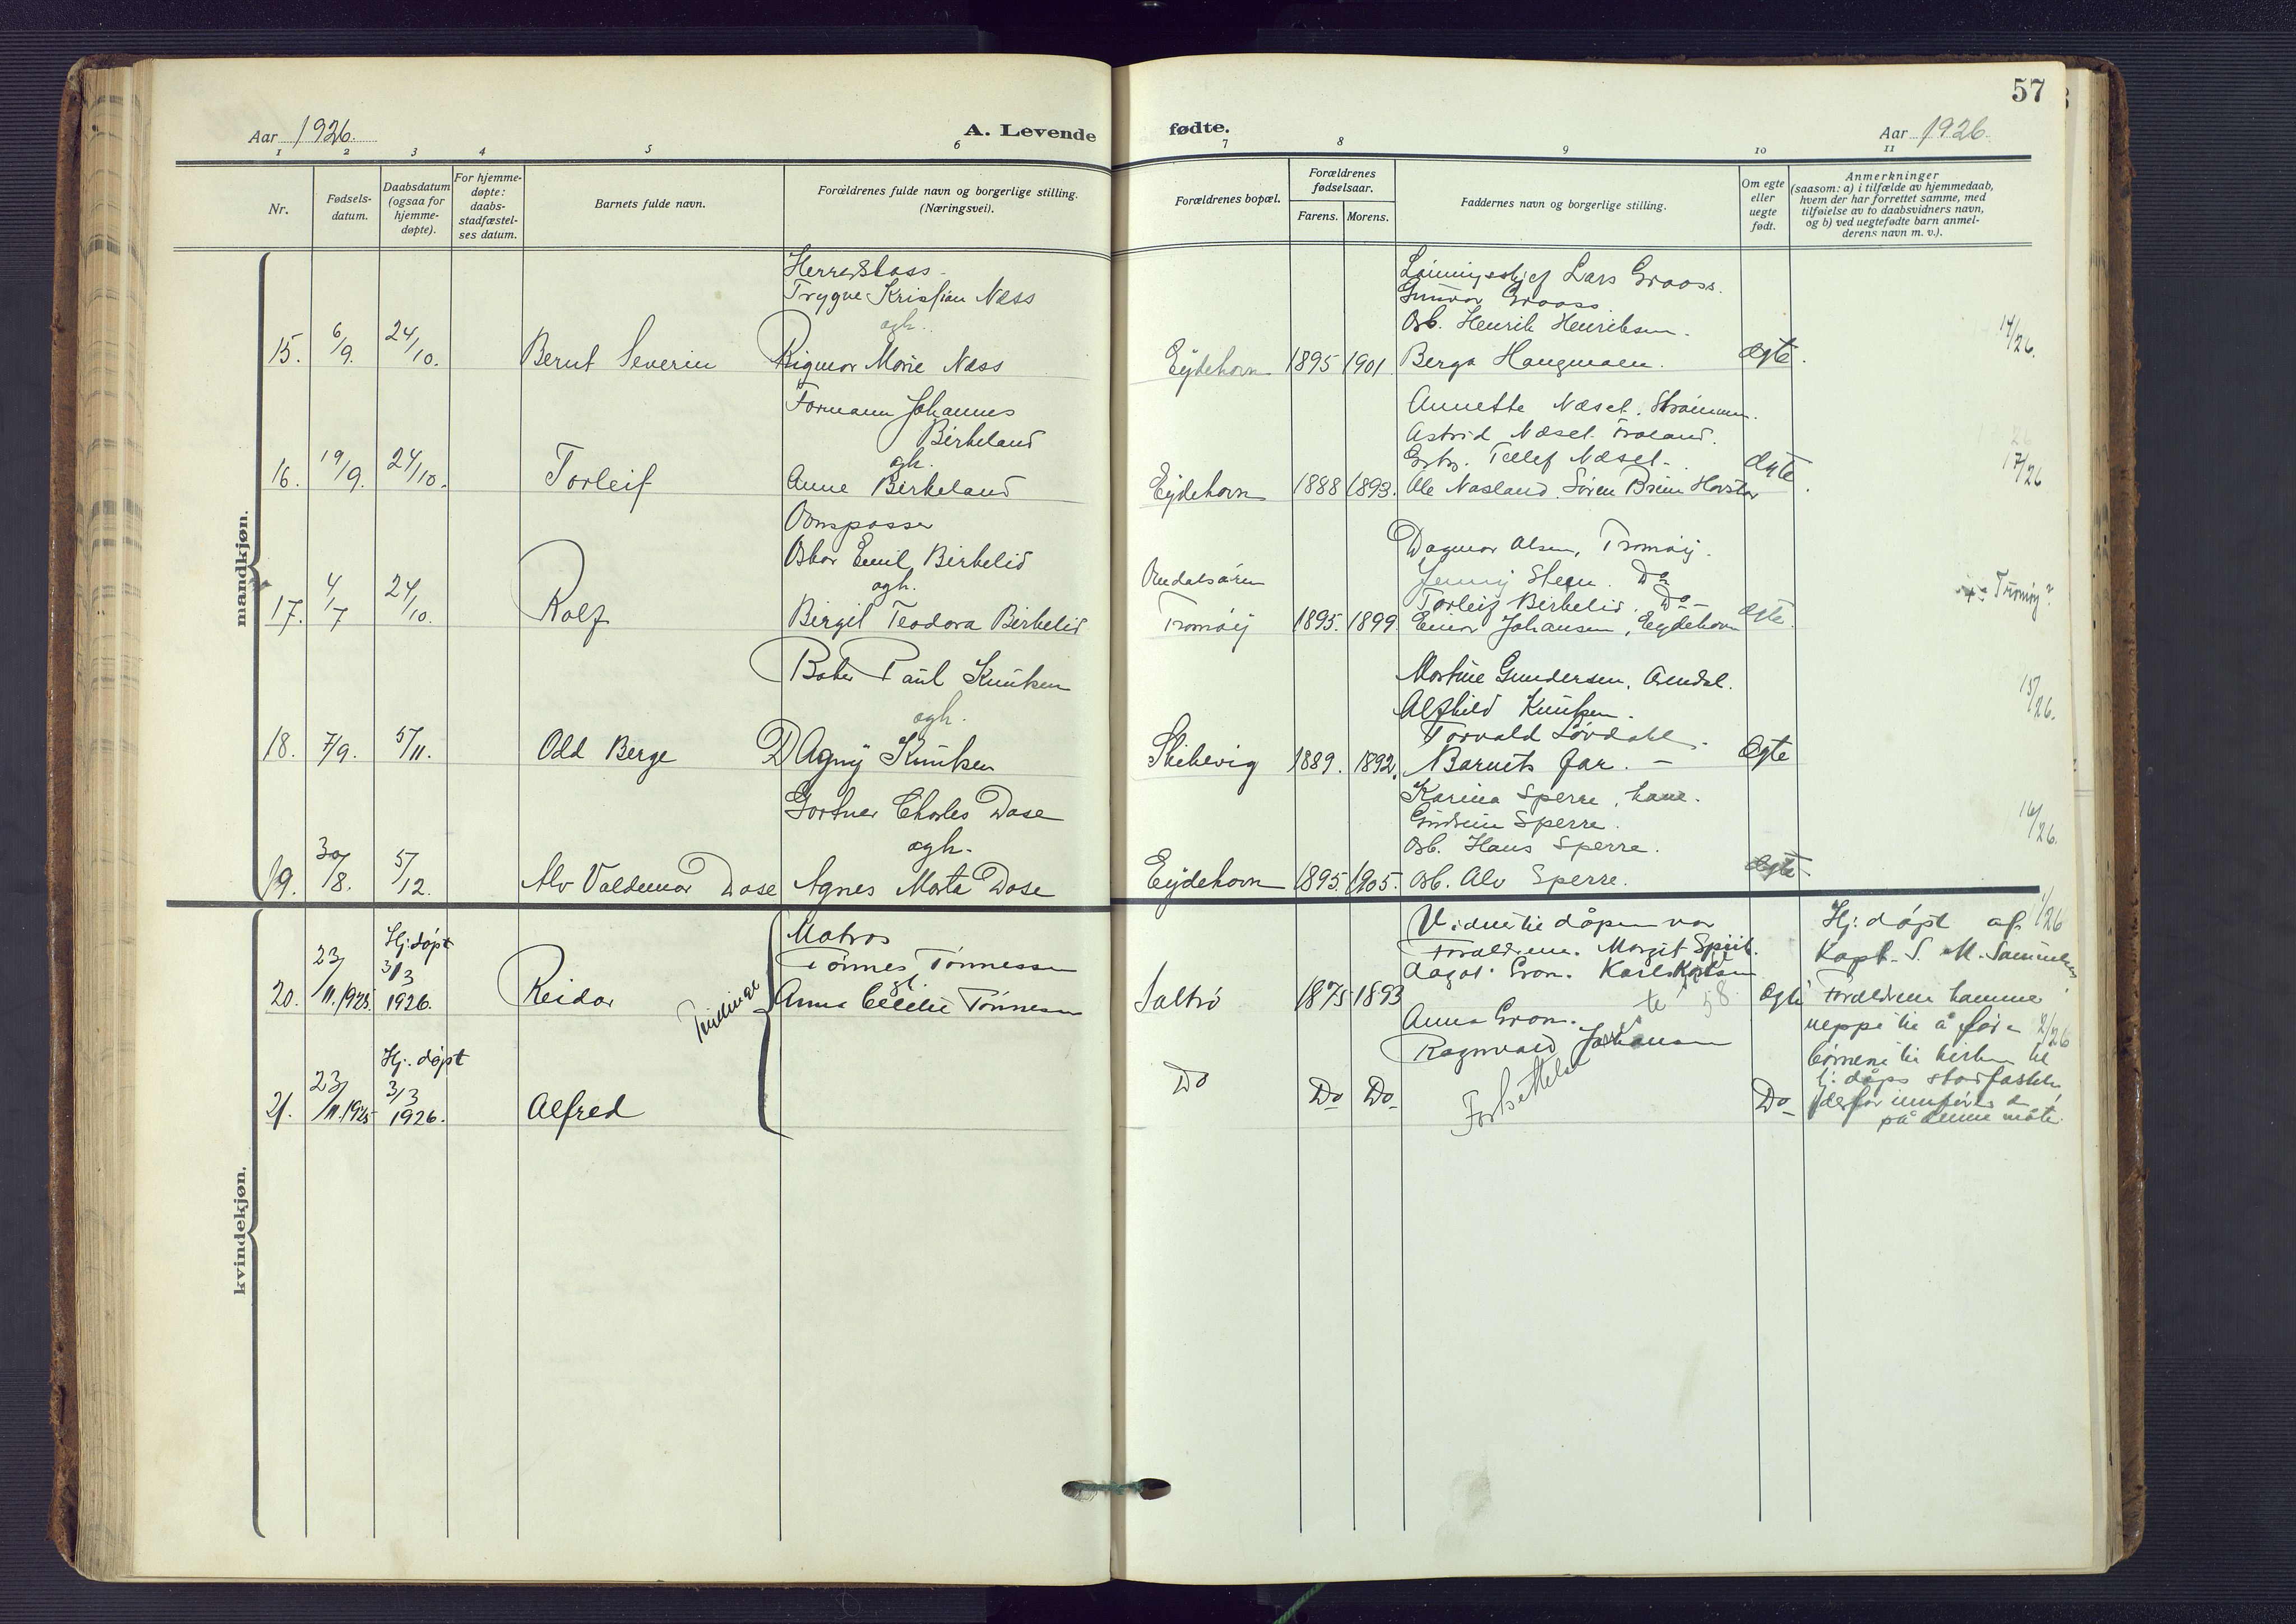 57
Aar 1926.
A. Levende
fødte.
Aar 1926.
1 2 3 4 5 6 7 8 9 10 11
Nr.
Fødsels-
datum.
Daabsdatum
(ogsaa for
hjemme-
døpte).
For hjemme-
døpte:
daabs-
stadfæstel-
ses datum.
Barnets fulde navn.
Forældrenes fulde navn og borgerlige stilling.
(Næringsvei).
Forældrenes bopæl.
Forældrenes
fødselsaar.
Farens. Morens.
Faddernes navn og borgerlige stilling.
Om egte
eller
uegte
født.
Anmerkninger
(saasom: a) i tilfælde av hjemmedaab,
hvem der har forrettet samme, med
tilføielse av to daabsvidners navn,
og b) ved uegtefødte barn anmel-
derens navn m. v.).
mandkjøn.
15. 6/9. 24/10. Bernt Severin
Trygve Kristian Næss
ogh.
Rigmor Marie Næss
Eydehavn 1895 1901
Lars Graass.
Gunvor Graass.
Arb. Henrik Henriksen.
Berga Haugmoen.
Ægte.
14/26.
16. 19/9. 24/10. Torleif
Formann Johannes
Birkeland
ogh.
Anne Birkeland
Eydehavn 1888 1893.
Annette Næset. Strømmen.
Astrid Næset. Froland.
Tellef Næset.
Ole Nasland. Søren Breim
Ægte.
17/26
17. 4/7 24/10. Rolf
Ovnspasser
Oskar Emil Birkelid
ogh.
Birgit Teodora Birkelid
Tromøy 1895. 1899
Dagmar Olsen, Tromøy.
Jenny Steen. Do
Torleif Birkelid. Do
Einar Johansen, Eydehavn
Ægte.
Tromøy?
18. 7/9. 5/11. Odd Berge
Baker Paul Knutsen
ogh.
Dagny Knutsen
Skilevig 1889. 1892.
Martine Gundersen, Arendal.
Alfhild Knutsen.
Torvald Løvdahl.
Barnets far. –
Ægte
15/26.
19. 30/8. 5/12. Alv Valdemar Dase
Gartner Charles Dase
ogh.
Agnes Marta Dase
Eydehavn 1895. 1905.
Karina Sperre,
Gudrun Sperre.
Arb. Hans Sperre.
Arb. Alv Sperre.
Ægte
16/26.
kvindekjøn.
20. 23/11.1925. Hj: døpt
3/3
1926. Reidar
Tvillinger
Matros
Tønnes Tønnessen
Anna Cecilie Tønnesen
Saltrø 1875 1893
Vidne til dåpen var
Foreldrene. Margit
Karl Karlsen
Anna
Ragnvald Johansen
Ægte
1/26
Hj: døpt af
Kapt. S. M.
Foreldrene kommer
neppe til å føre
børnene til kirken til
hj: dåps stadfæstelse,
derfor innføres de
på denne måte.
2/26
21. 23/11.1925 Hj. døpt
3/3
1926. Alfred
Do Do Do
Do